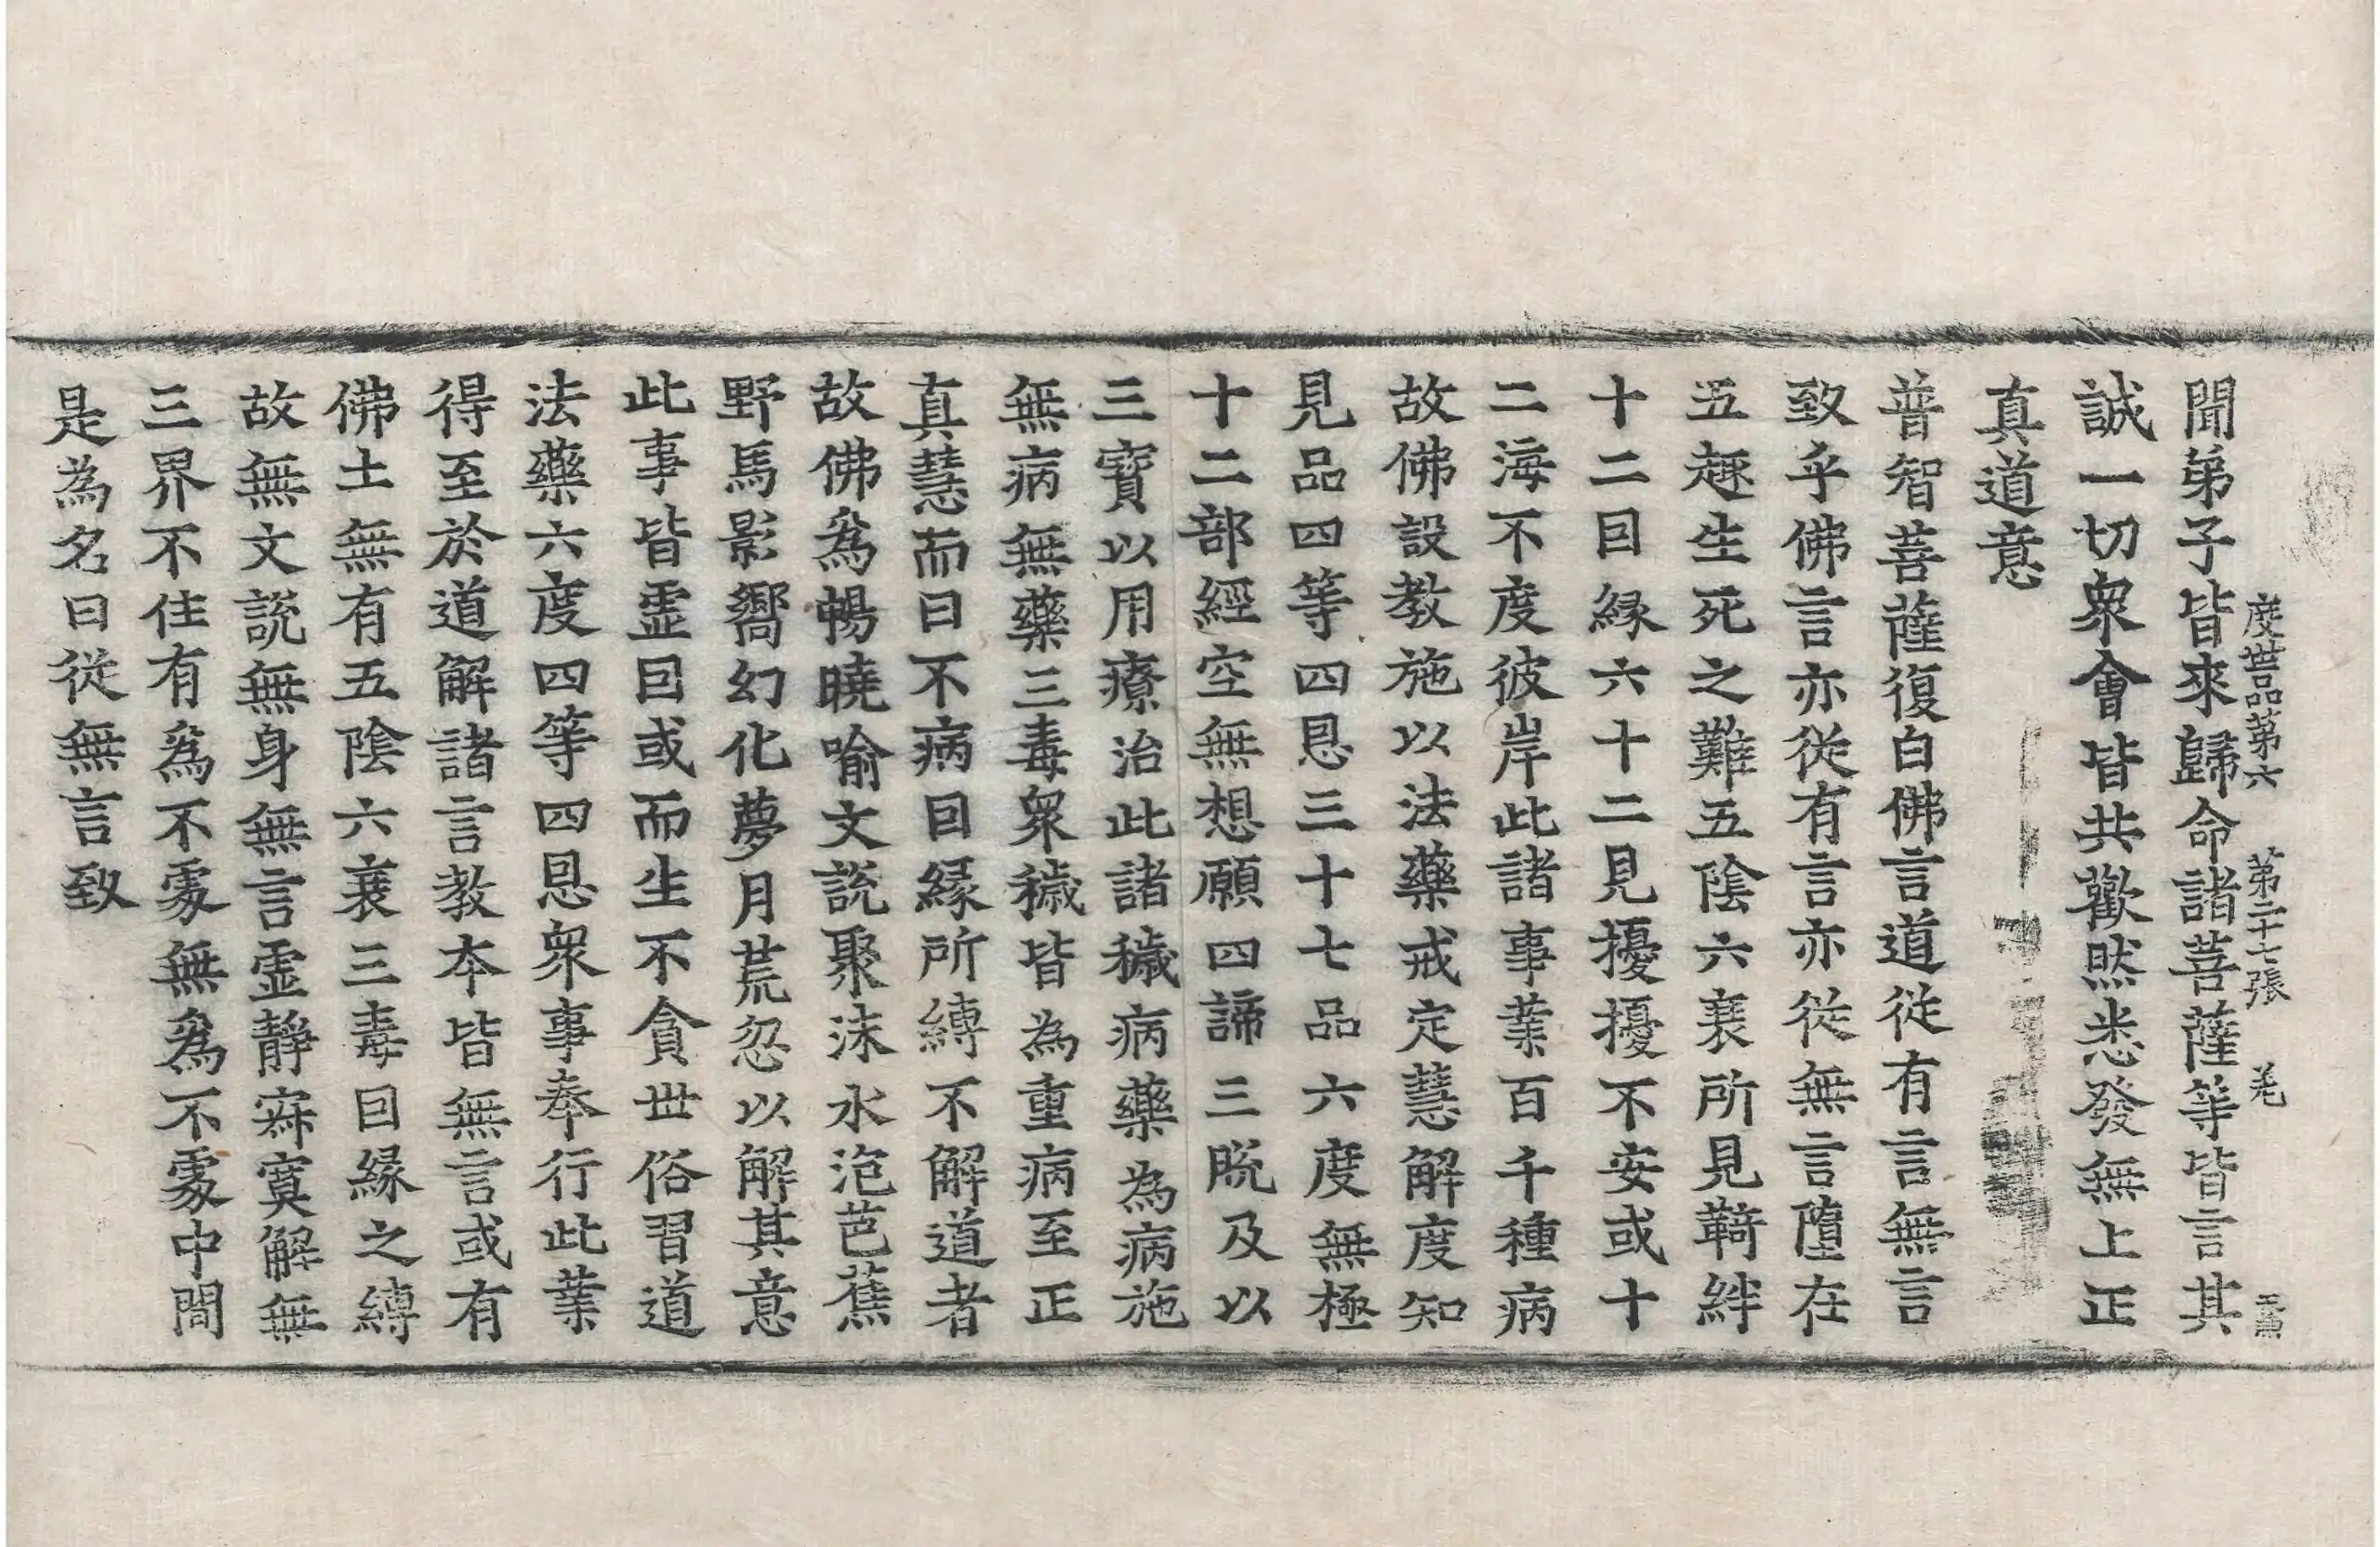 度世品第六 第二十七張 羌
聞弟子皆來歸命諸菩薩等皆言其
誠一切衆會皆共歡然悉發無上正
真道意
普智菩薩復白佛言道從有言無言
致乎佛言亦從有言亦從無言墮在
五趣生死之難五陰六衰所見羇絆
十二因緣六十二見擾擾不安或十
二海不度彼岸此諸事業百千種病
故佛設教施以法藥戒定慧解度知
見品四等四恩三十七品六度無極
十二部經空無想願四諦三脫及以
三寶以用療治此諸穢病藥為病施
無病無藥三毒衆穢皆為重病至正
真慧而曰不病因緣所縛不解道者
故佛爲暢曉喻文說聚沫水泡芭蕉
野馬影響幻化夢月荒忽以解其意
此事皆虛因或而生不貪世俗習道
法藥六度四等四恩衆事奉行此業
得至於道解諸言教本皆無言或有
佛土無有五陰六衰三毒因緣之縛
故無文說無身無言虛靜寂寞解無
三界不住有爲不處無爲不處中間
是為名曰從無言致